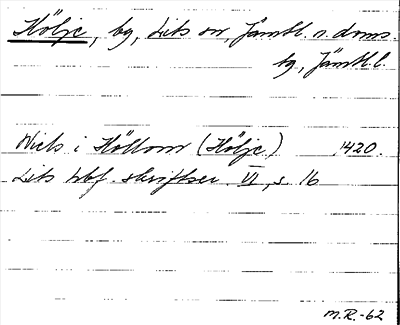 Hölje, by, Lits sn, Jämtl. n. doms.
by, Jämtl. l.
Niels i Höllom (Hölje) 1420.
Lits hbf. skriftser. VI, s. 16
M.R.-62